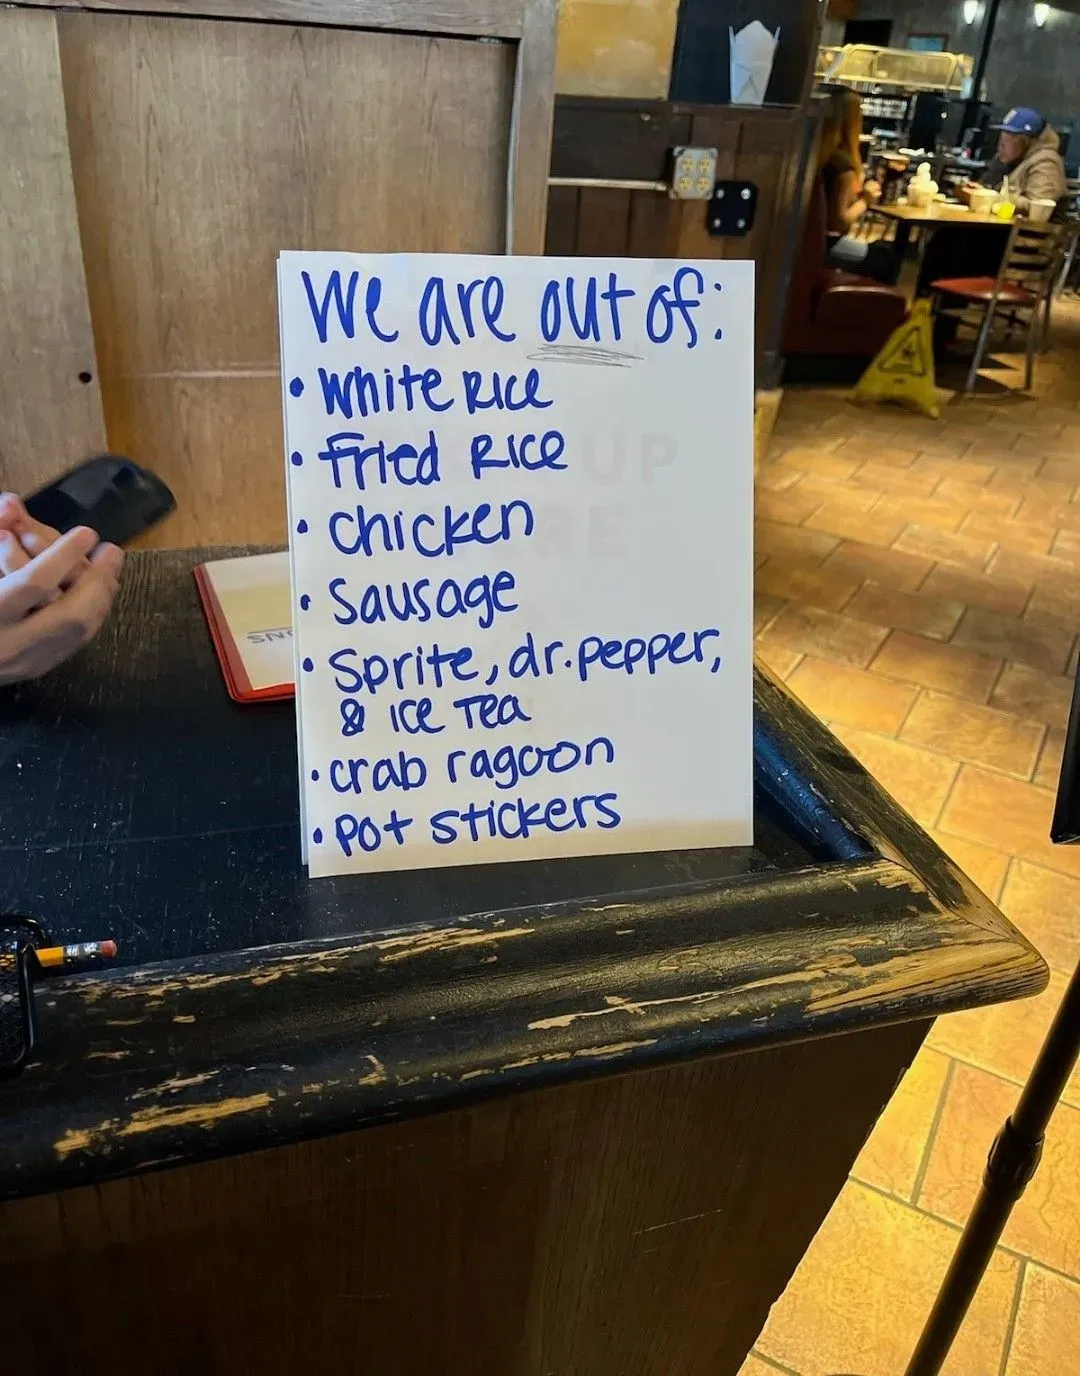 We are out of:
• White Rice
• Fried Rice
• Chicken
• Sausage
• Sprite, dr. pepper,
& ice Tea
• crab ragoon
• Pot stickers
UP
RE